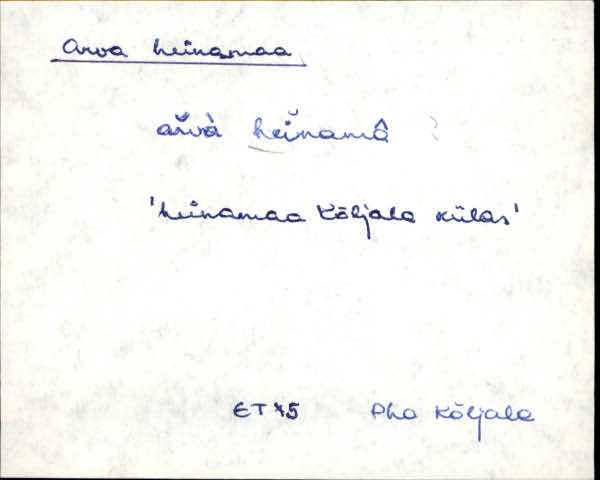 Arva heinamaa
ar̆và heĭnamâ ?
'heinamaa Kõljala külas'
ET 75 Pha Kõljala